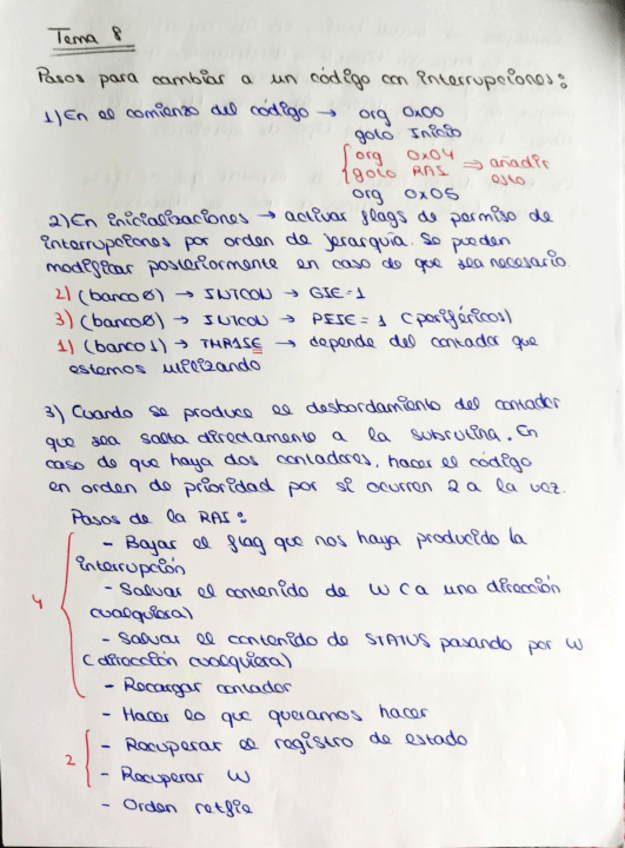 Tema 8
Pasos para cambiar a un código con interrupciones:
1) En el comienzo del código → org 0x00
goto Inicio
org 0x04 ⇒ añadir
goto RAI esto
org 0x05
2) En inicializaciones → activar flags de permiso de
interrupciones por orden de jerarquía. Se pueden
modificar posteriormente en caso de que sea necesario.
2) (banco 0) → INTCON → GIE=1
3) (banco 0) → INTCON → PEIE = 1 (periféricos)
1) (banco 1) → TMR1IE → depende del contador que
estemos utilizando
3) Cuando se produce el desbordamiento del contador
que sea salta directamente a la subrutina. En
caso de que haya dos contadores, hacer el código
en orden de prioridad por si ocurren 2 a la vez.
Pasos de la RAI:
- Bajar el flag que nos haya producido la
interrupción
- Salvar el contenido de W (a una dirección
cualquiera)
4
- Salvar el contenido de STATUS pasando por W
(dirección cualquiera)
- Recargar contador
- Hacer lo que queramos hacer
- Recuperar el registro de estado
2
- Recuperar W
- Orden retfie